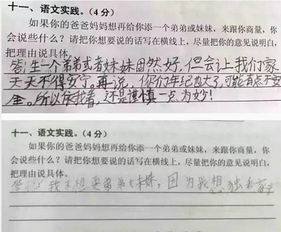 十一、语文实践。(4分)
如果你的爸爸妈妈想再给你添一个弟弟或妹妹，来跟你商量，你
会说些什么？请把你想要说的话写在横线上，尽量把你的意见说明白，
把理由说具体。
答:生一个弟弟或者妹妹固然好，但会让我们家
天天不得安宁。再说，你们年纪大了，可能有点不安
全。所以依我看，还是谨慎一点为妙！
十一、语文实践。(4分)
如果你的爸爸妈妈想再给你添一个弟弟或妹妹，来跟你商量，你
会说些什么？请把你想要说的话写在横线上，尽量把你的意见说明白，
把理由说具体。
我不想要弟弟妹妹，因为我想独